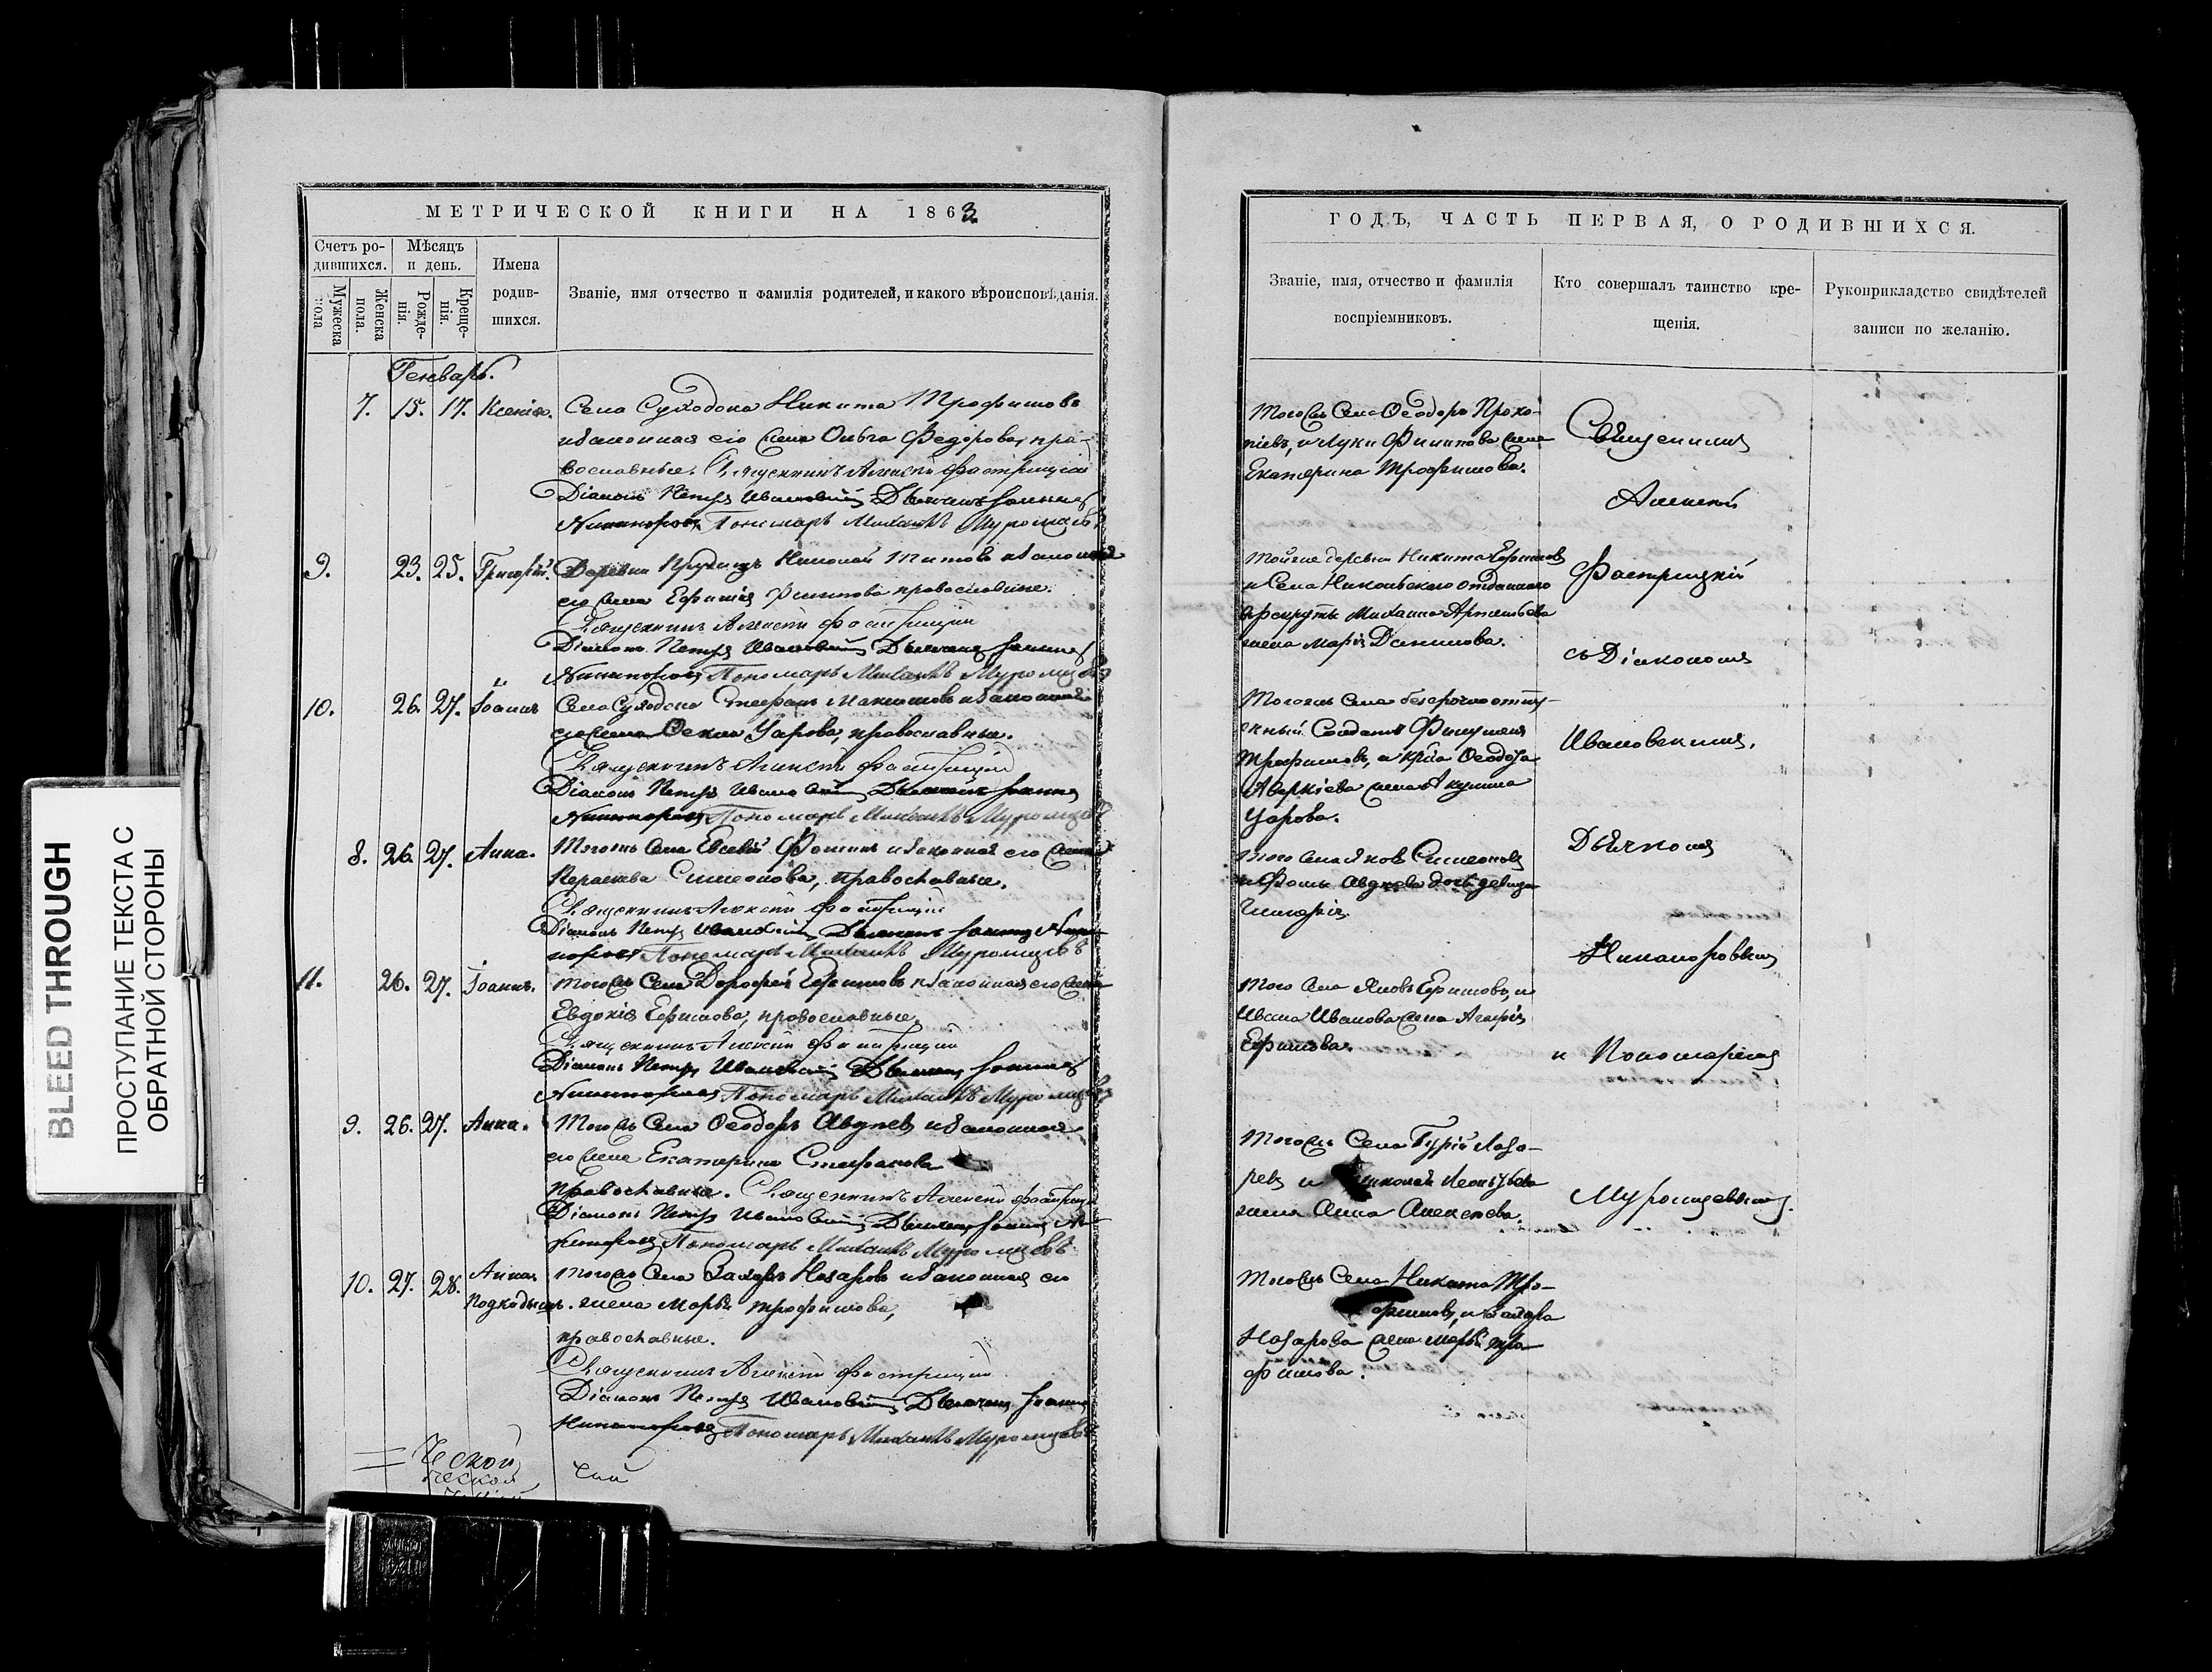 BLEED THROUGH
ПРОСТУПАНИЕ ТЕКСТА С
ОБРАТНОЙ СТОРОНЫ
МЕТРИЧЕСКОЙ КНИГИ НА 1863
Счетъ ро-
дившихся.
Мужеска
пола
Женска
пола.
Мѣсяцъ
и день.
Рожде-
нія.
Креще-
нія.
Имена
родив-
шихся.
Званіе, имя отчество и фамилія родителей, и какого вѣроисповѣданія.
Генварь.
7. 15. 17. Ксенія. Села Суходола Никита Трофимовъ
и законная его жена Ольга Федорова, пра-
вославные. Священникъ Алексѣй Фастрицкій
Діаконъ Петръ Ивановскій Дьячекъ Іоаннъ
Никаноровъ Пономарь Михаилъ Муромцевъ
9. 23. 25. Григорій. Деревни Прудищъ Николай Титовъ и законная
его жена Ефимія Филипова православные.
Священникъ Алексѣй Фастрицкій
Діаконъ Петръ Ивановскій Дьячекъ Іоаннъ
Никаноровъ Пономарь Михаилъ Муромцевъ
10. 26. 27. Іоаннъ Села Суходола Стефанъ Максимовъ и законная
его жена Фекла Уарова, православные.
Священникъ Алексѣй Фастрицкій
Діаконъ Петръ Ивановскій Дьячекъ Іоаннъ
Никаноровъ Пономарь Михаилъ Муромцевъ
8. 26. 27. Анна. Тогожъ Села Евсевій Фоминъ и законная его жена
Симеонова, православные.
Священникъ Алексѣй Фастрицкій
Діаконъ Петръ Ивановскій Дьячекъ Іоаннъ Ника-
норовъ Пономарь Михаилъ Муромцевъ
11. 26. 27. Іоаннъ. Тогожъ Села Дорофей Ефимовъ и законная его жена
Евдокія Ефимова, православные.
Священникъ Алексѣй Фастрицкій
Діаконъ Петръ Ивановскій Дьячекъ Іоаннъ
Никаноровъ Пономарь Михаилъ Муромцевъ
9. 26. 27. Анна. Тогожъ Села Ѳеодоръ Авдѣевъ и законная
его жена Екатерина Стефанова
православные. Священникъ Алексѣй Фастрицкій
Діаконъ Петръ Ивановскій Дьячекъ Іоаннъ Ни-
каноровъ Пономарь Михаилъ Муромцевъ
10. 27. 28. Анна тогожъ Села Захаръ Назаровъ и законная его
Подкидышъ. жена Марья Трофимова,
православные.
Священникъ Алексѣй Фастрицкій
Діаконъ Петръ Ивановскій Дьячекъ Іоаннъ
Никаноровъ Пономарь Михаилъ Муромцевъ
ческой
ческой
ГОДЪ, ЧАСТЬ ПЕРВАЯ, О РОДИВШИХСЯ.
Званіе, имя, отчество и фамилія
воспріемниковъ.
Кто совершалъ таинство кре-
щенія.
Рукоприкладство свидѣтелей
записи по желанію.
Тогожъ Села Ѳеодоръ Проко-
піевъ, и Луки Филипова жена
Екатерина Трофимова.
Тойже деревни Никита Ефимовъ
и Села Никольскаго отданнаго
в рекруты Михаила Артемьева
жена Марія Данилова.
Тогожъ Села безсрочно отпу-
скный Солдатъ Филимонъ
Трофимовъ, и кр-на Ѳеодора
Аверкіева жена Акулина
Уарова.
того Села Яковъ Симеоновъ
и Фомы Авдѣева дочь девица
Гликерія.
Того Села Яковъ Ефимовъ, и
Ивана Иванова жена Агафія
Ефимова.
Тогожъ Села Гурій Лаза-
ревъ и Николая
жена Анна Алексѣева.
Тогожъ Села Никита Тро-
фимовъ, и Захара
Назарова жена Марья Тро-
фимова.
Священникъ
Алексѣй
Фастрицкій
съ Діакономъ
Ивановскимъ,
Дьячкомъ
Никаноровымъ
и Пономаремъ
Муромцевымъ.